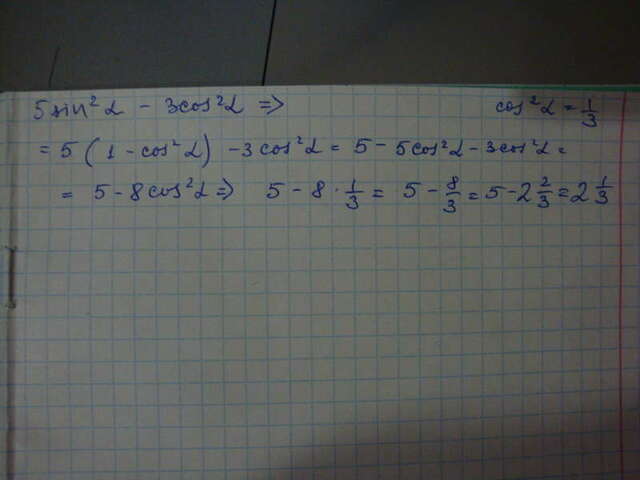 5sin²α - 3cos²α ⇒ cos²α = 1/3
= 5(1 - cos²α) - 3cos²α = 5 - 5cos²α - 3cos²α =
= 5 - 8cos²α ⇒ 5 - 8 · 1/3 = 5 - 8/3 = 5 - 2 2/3 = 2 1/3